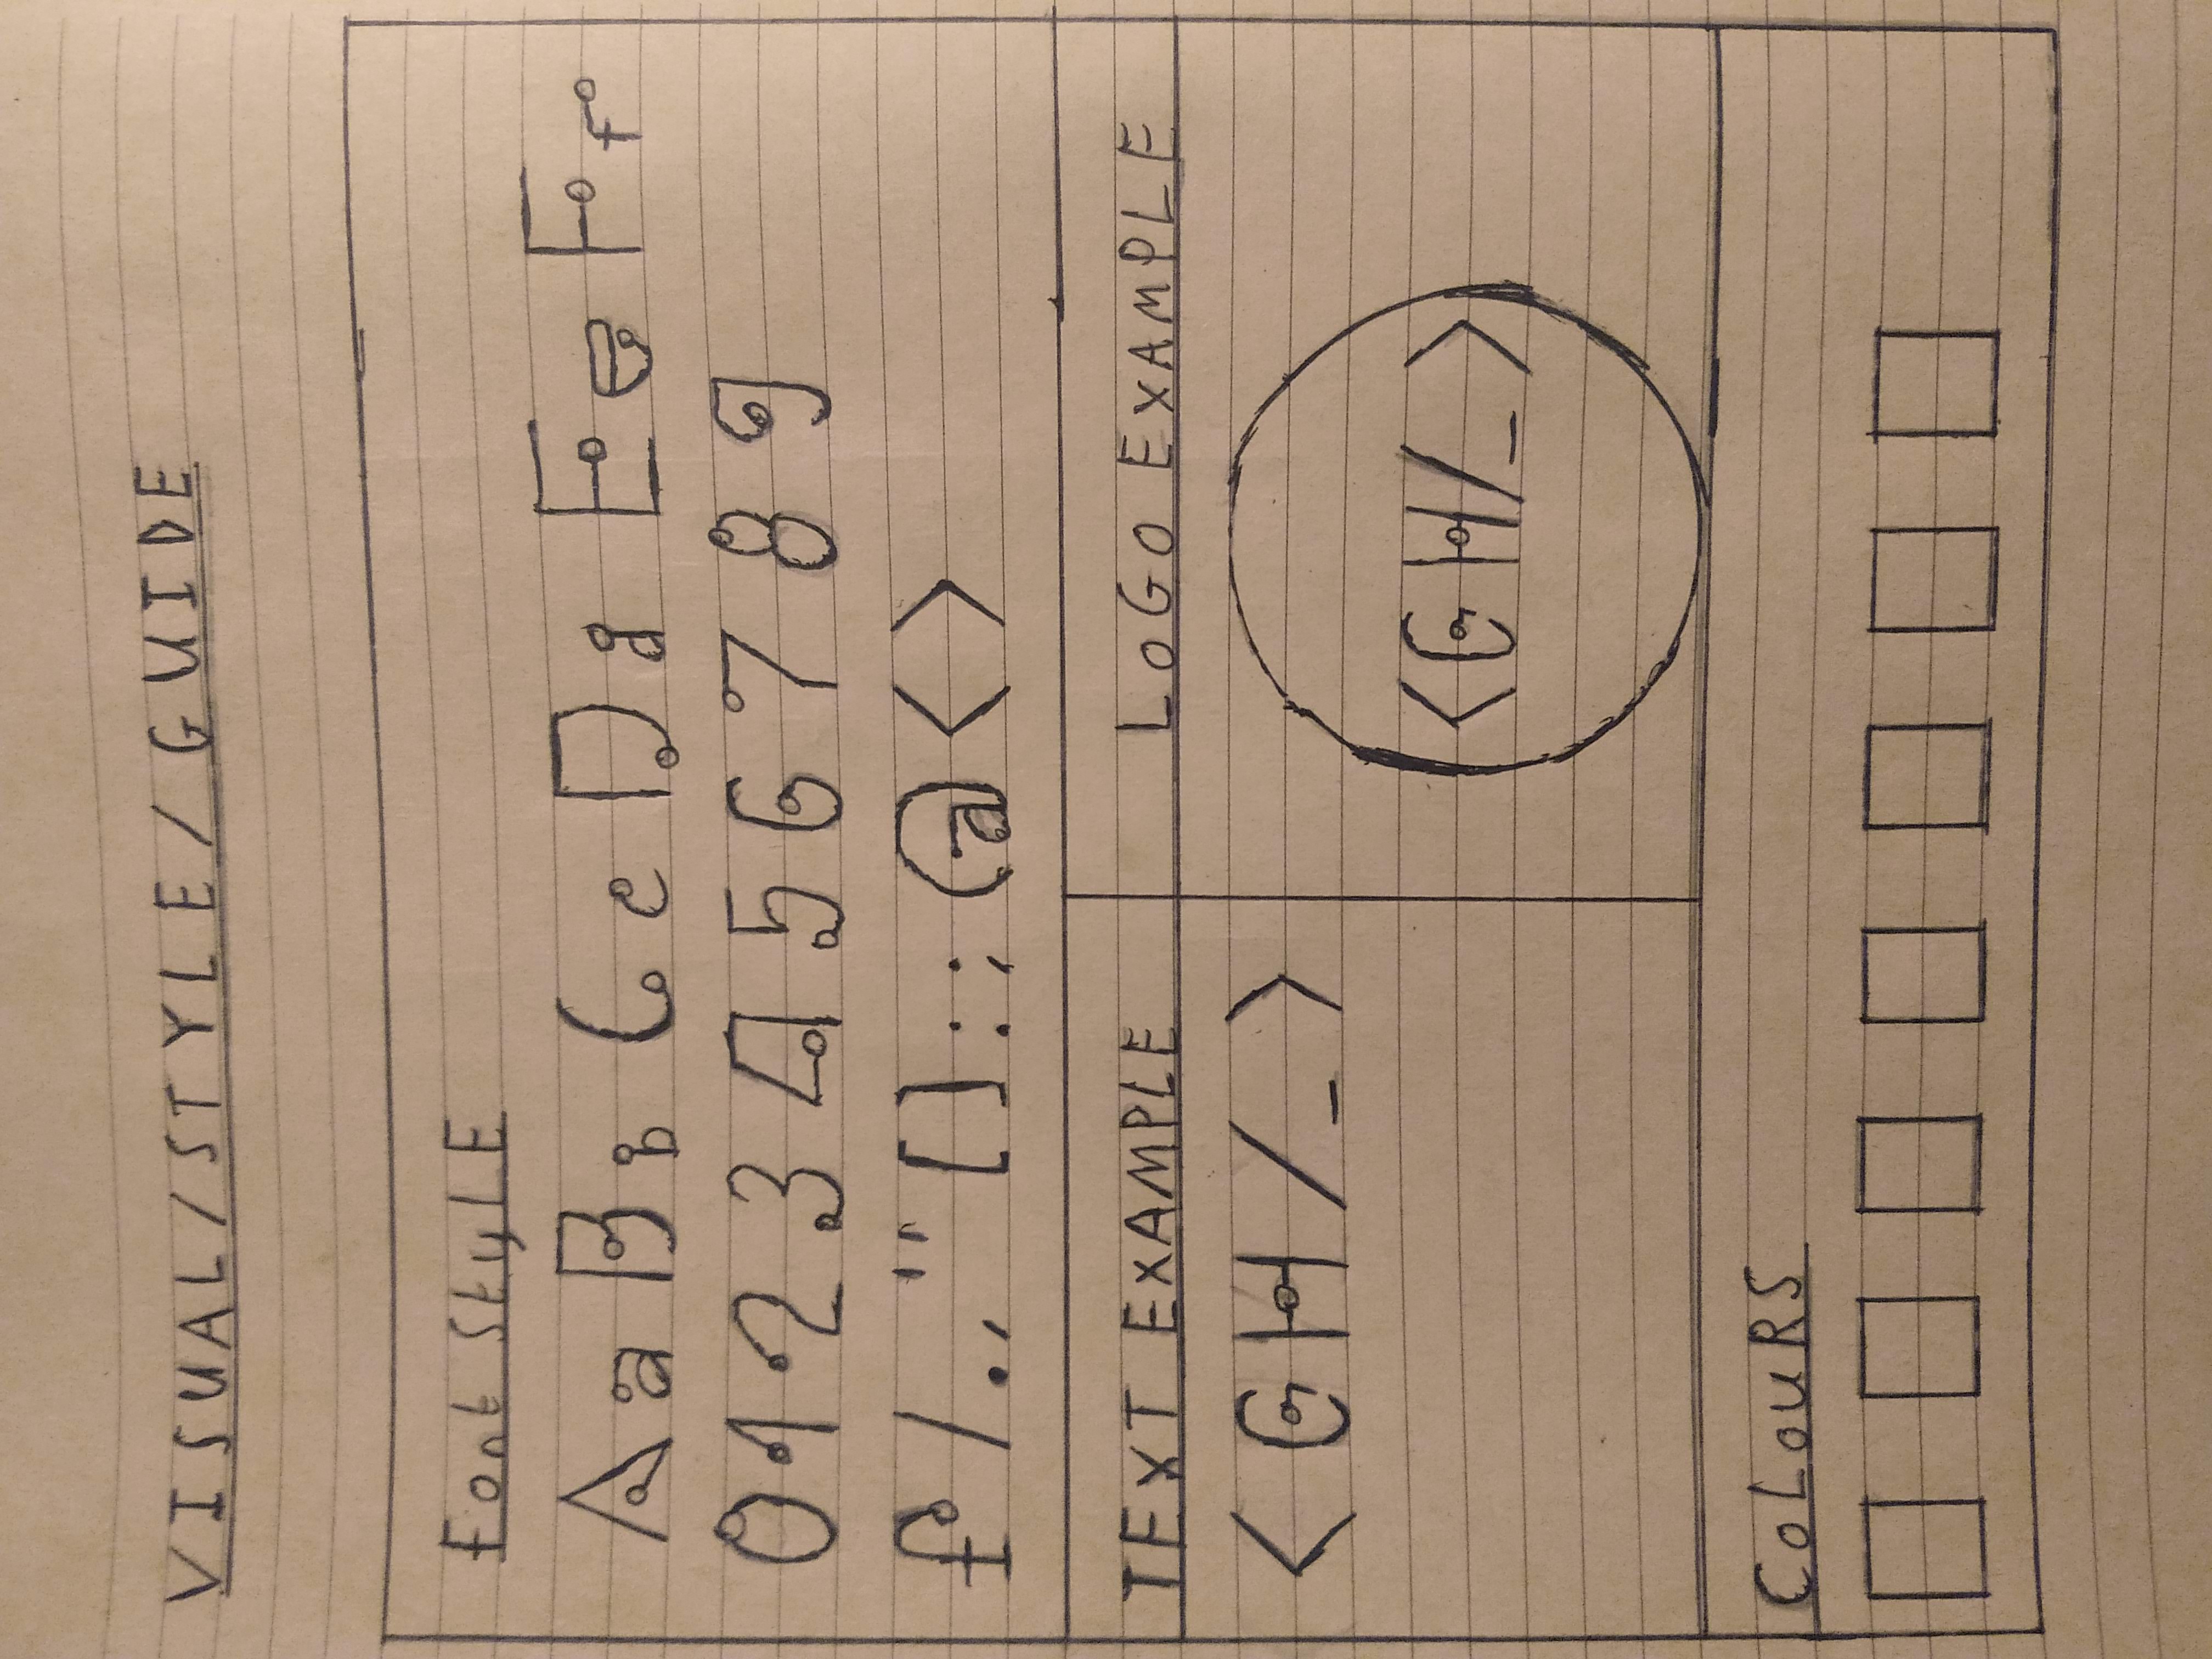 VISUAL/STYLE/GUIDE
Font StyLE
Aa Bb Cc Dd Ee Ff
0 1 2 3 4 5 6 7 8 9
f / . , " [ ] : ; @ < >
TEXT EXAMPLE
<GH/_>
LOGO EXAMPLE
<GH/_>
COLOURS